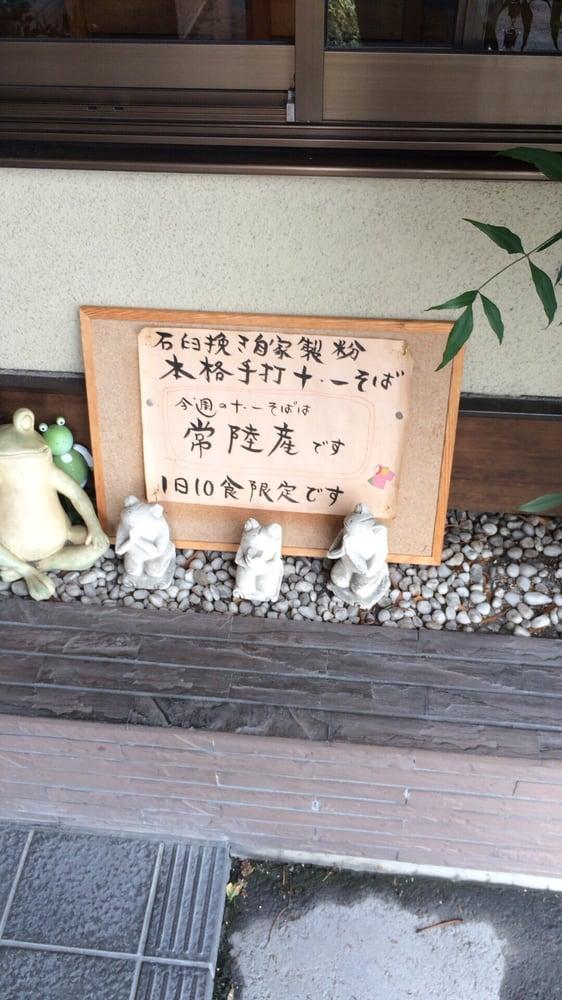 石臼挽き自家製粉
本格手打十.一そば
今週の十.一そばは
常陸産です
1日10食限定です